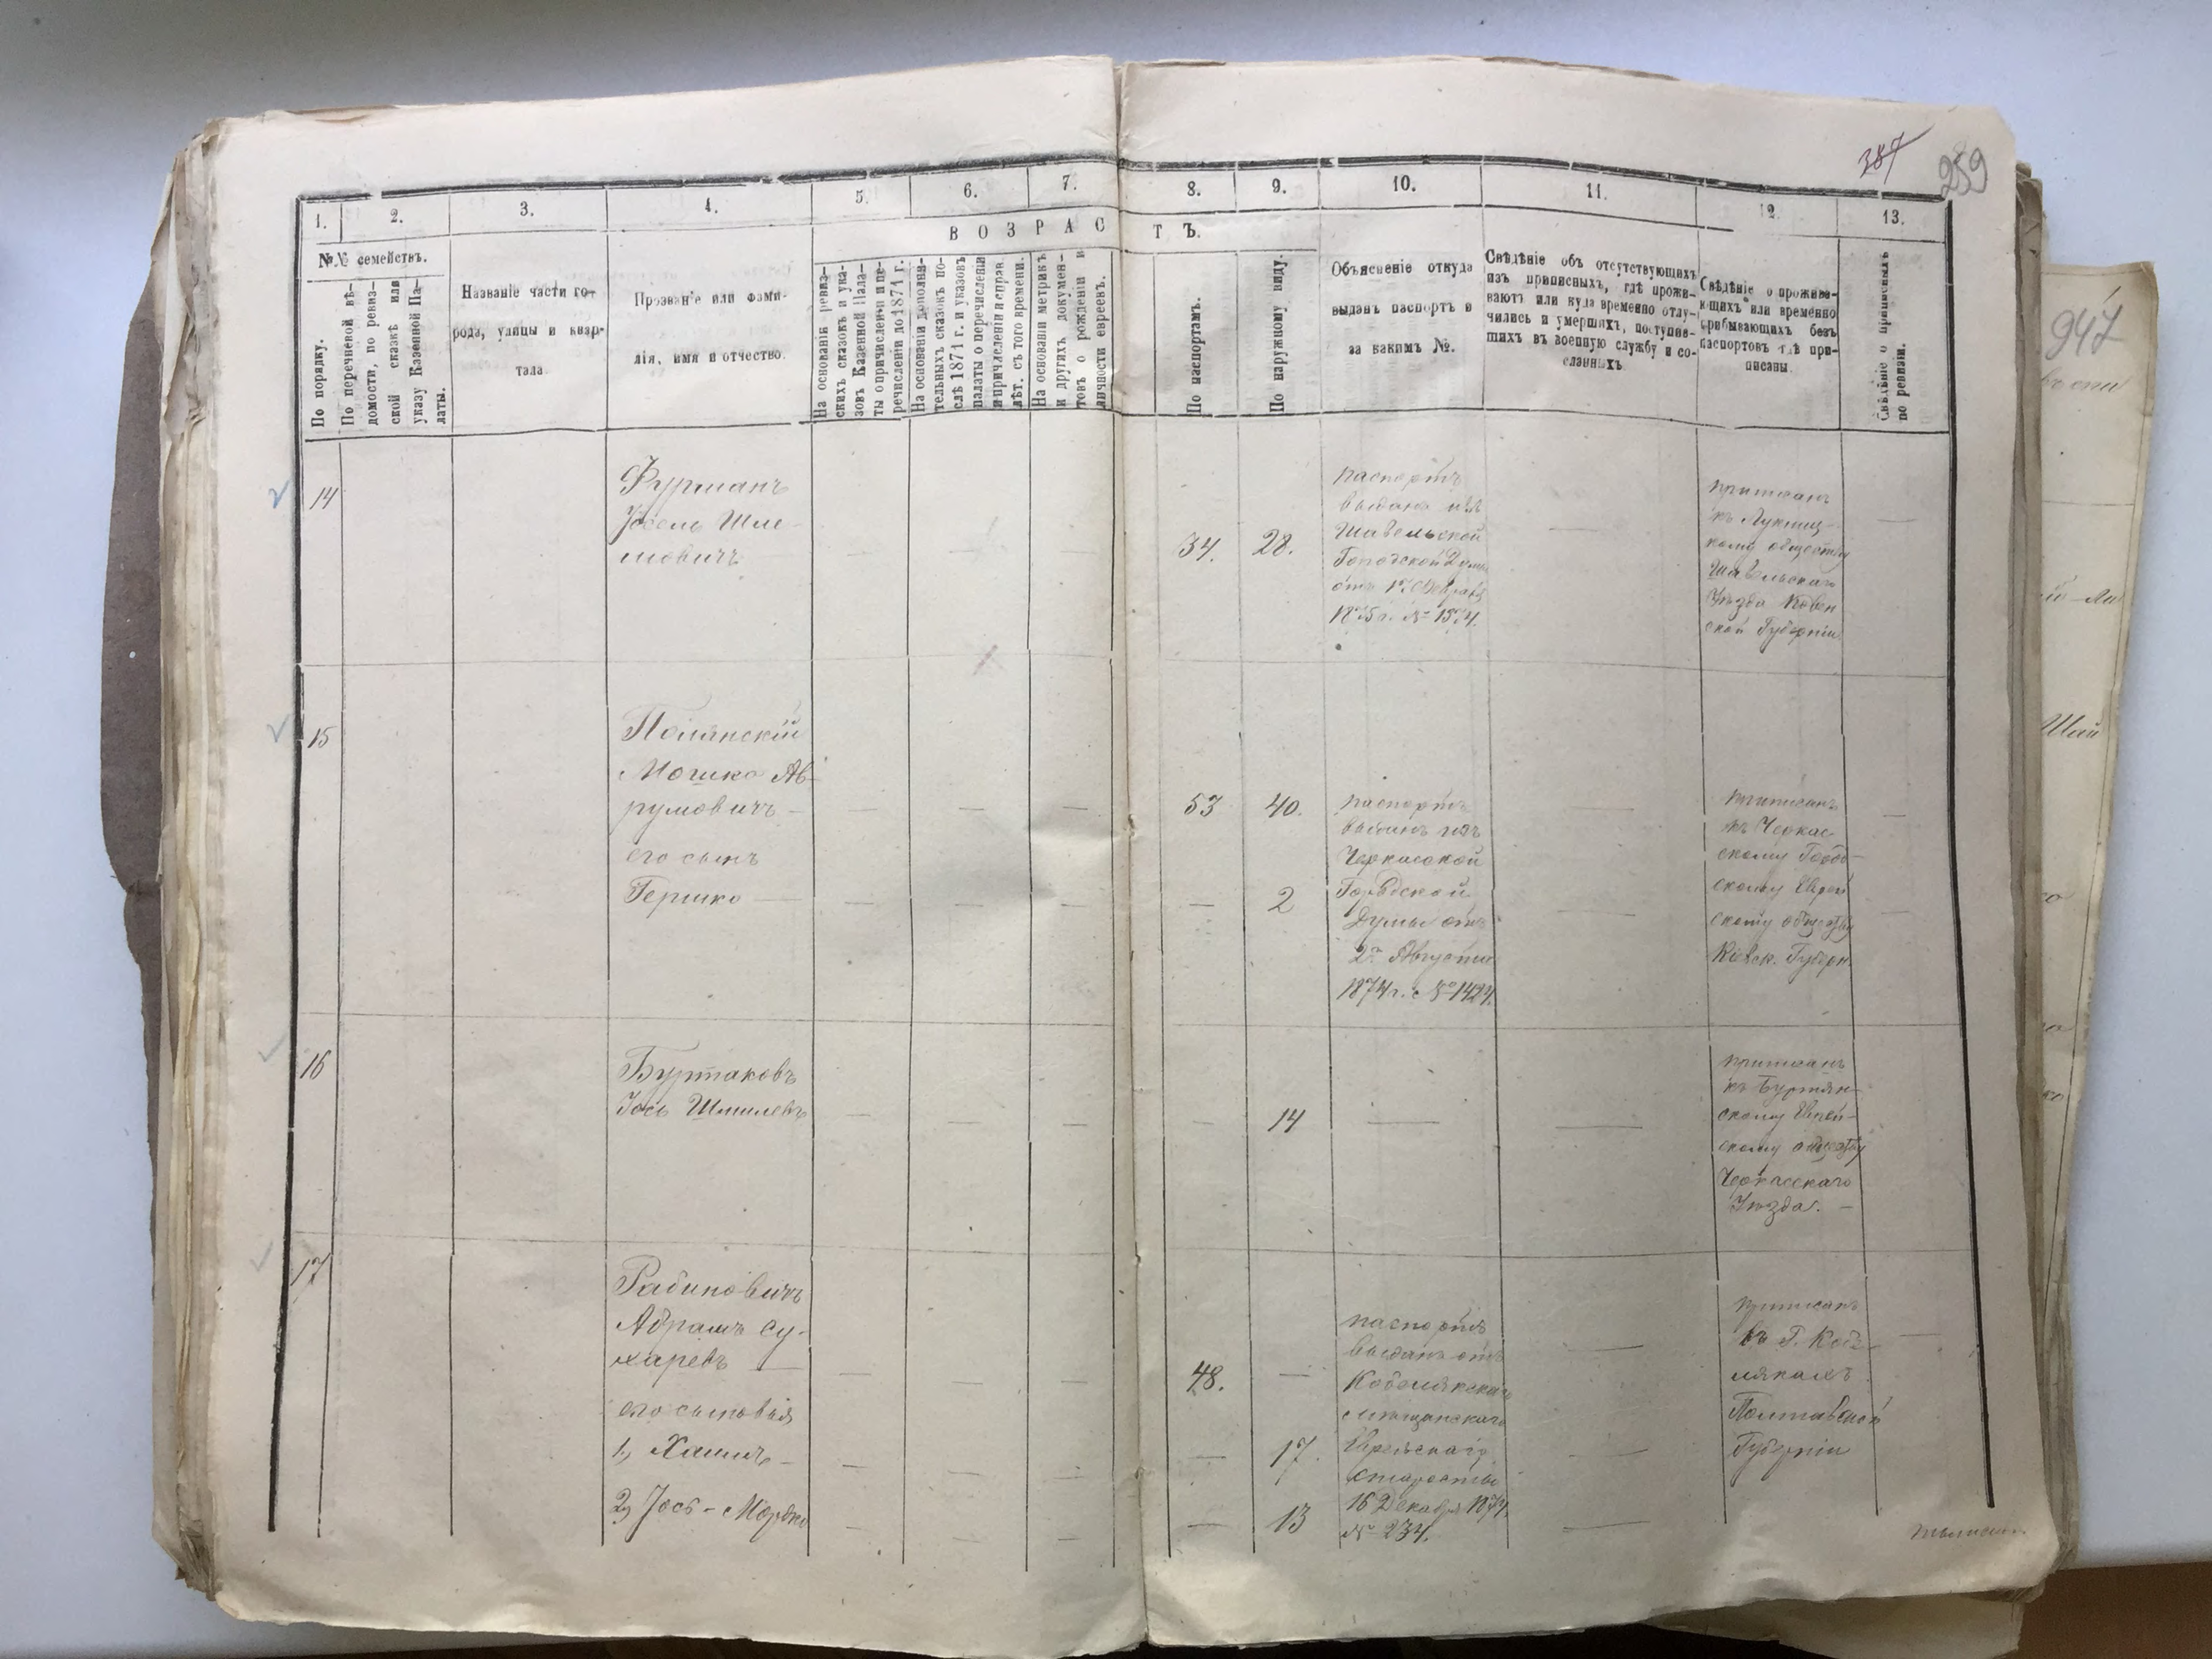 387
259
1.
2.
3.
4.
5.
6.
7.
8.
9.
10.
11.
12.
13.
В О З Р А С Т Ъ.
№№ семействъ.
По порядку.
По перечневой вѣ-
домости, по ревиз-
ской сказкѣ или
указу Казенной Па-
латы.
Названіе части го-
рода, улицы и квар-
тала
Прозваніе или фами-
лія, имя и отчество.
На основаніи ревиз-
скихъ сказокъ и ука-
зовъ Казенной Пала-
ты о причисленіи и пе-
речисленіи до 1871 г.
На основаніи дополни-
тельныхъ сказокъ по-
слѣ 1871 г. и указовъ
палаты о перечисленіи
и причисленіи и справ.
лѣт. съ того времени.
На основаніи метрикъ
и другихъ докумен-
товъ о рожденіи и
личности евреевъ.
По паспортамъ.
По наружному виду.
Объясненіе откуда
выданъ паспортъ и
за какимъ №.
Свѣдѣніе объ отсутствующихъ
изъ приписныхъ, гдѣ прожи-
ваютъ или куда временно отлу-
чились и умершихъ, поступив-
шихъ въ военную службу и со-
сланныхъ
Свѣдѣніе о прожива-
ющихъ или временно
прибывающихъ безъ
паспортовъ гдѣ при-
писаны.
Свѣдѣніе о приписныхъ
по ревизіи.
14
Фурманъ
Іосель Шле-
мовичъ
34.
28.
паспортъ
выданъ изъ
Шавельской
Городской Думы
отъ Февраля
1875 г. №
приписанъ
къ
кому обществу
Шавельскаго
Уѣзда Ковен
ской Губерніи
15
Полянскій
Мошко Аб-
румовичъ –
его сынъ
Гершко —
53
40.
2
паспортъ
выданъ изъ
Черкасской
Городской
Думы отъ
2го Августа
1874 г. с № 1424.
приписанъ
къ Черкас-
скому Городо-
скому Еврей
скому обществу
Кіевск. Губерн.
16
Буртаковъ
Іось Шмилевъ
14
приписанъ
къ Буртян-
скому Еврей-
скому обществу
Черкасскаго
Уѣзда. –
17
Рабиновичъ
Абрамъ Су-
харевъ —
его сыновья
1, Хаимъ –
2, Іось-Мордко
48.
17.
13
паспортъ
выданъ отъ
Кобелякскаго
мѣщанскаго
Еврейскаго
старосты
16 Декабря 1874.
№ 234.
приписанъ
въ г. Кобе-
лякахъ
Полтавской
Губерніи
947
Шай